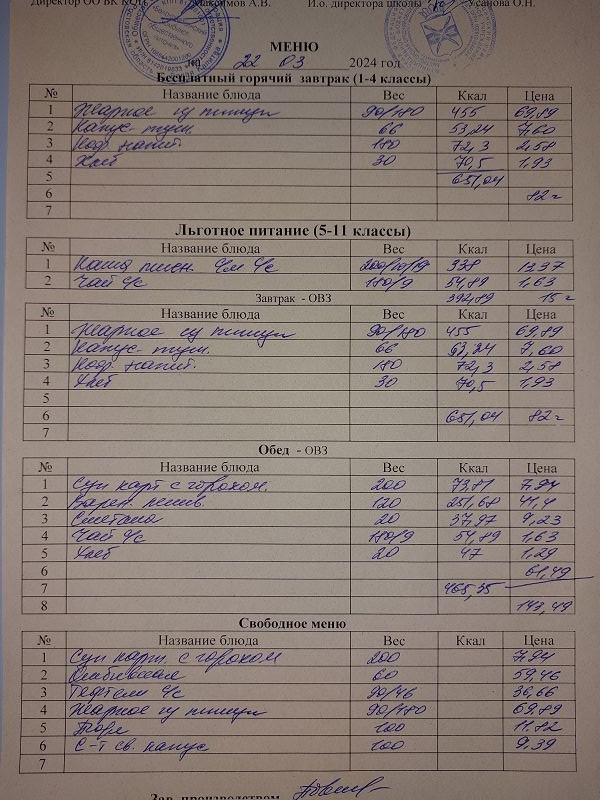 Директор ОО ВК КОЦ Максимов А.В. И.о. директора школы Усанова О.Н.
МЕНЮ
На 22 03 2024 год
Бесплатный горячий завтрак (1-4 классы)
№ Название блюда Вес Ккал Цена
1 Жаркое 90/180 455 69,89
2 Капус. туш. 66 53,24 7,60
3 Коф. напит. 180 72,3 2,58
4 Хлеб 30 70,5 1,93
5 651,04
6 82=
7
Льготное питание (5-11 классы)
№ Название блюда Вес Ккал Цена
1 Каша пшен. 338 13,37
2 Чай с/с 180/9 54,89 1,63
Завтрак - ОВЗ 392,89 15=
1 Жаркое 90/180 455 69,89
2 Капус. туш. 66 53,24 7,60
3 Коф. напит. 180 72,3 2,58
4 Хлеб 30 70,5 1,93
5
6 651,04 82=
7
Обед - ОВЗ
№ Название блюда Вес Ккал Цена
1 Суп карт с горохом 200 73,81 7,94
2 Варен. 120 251,68 41,4
3 Сметана 20 37,97 9,23
4 Чай с/с 180/9 54,89 1,63
5 Хлеб 20 47 1,29
6 61,49
7 465,35
8 143,49
Свободное меню
№ Название блюда Вес Ккал Цена
1 Суп карт. с горохом 200 7,94
2 60 59,46
3 Тефтели с/с 90/46 36,66
4 Жаркое 90/180 69,89
5 100 11,82
6 С-т св. капус 100 9,39
7
Зав. производством